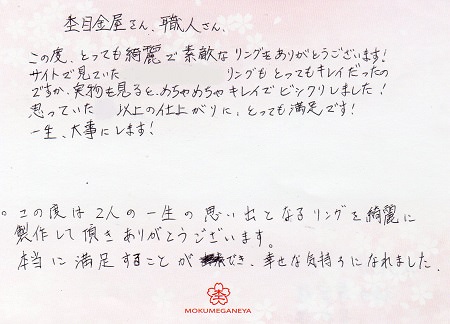 杢目金屋さん、職人さん、
この度、とっても綺麗で素敵なリングをありがとうございます!
サイトで見ていた リングもとってもキレイだったの
ですが、実物も見ると、めちゃめちゃキレイでビックリしました!
思っていた 以上の仕上がりに、とっても満足です!
一生、大事にします!
。この度は2人の一生の思い出となるリングを綺麗に
製作して頂きありがとうございます。
本当に満足することができ、幸せな気持ちになれました。
MOKUMEGANEYA